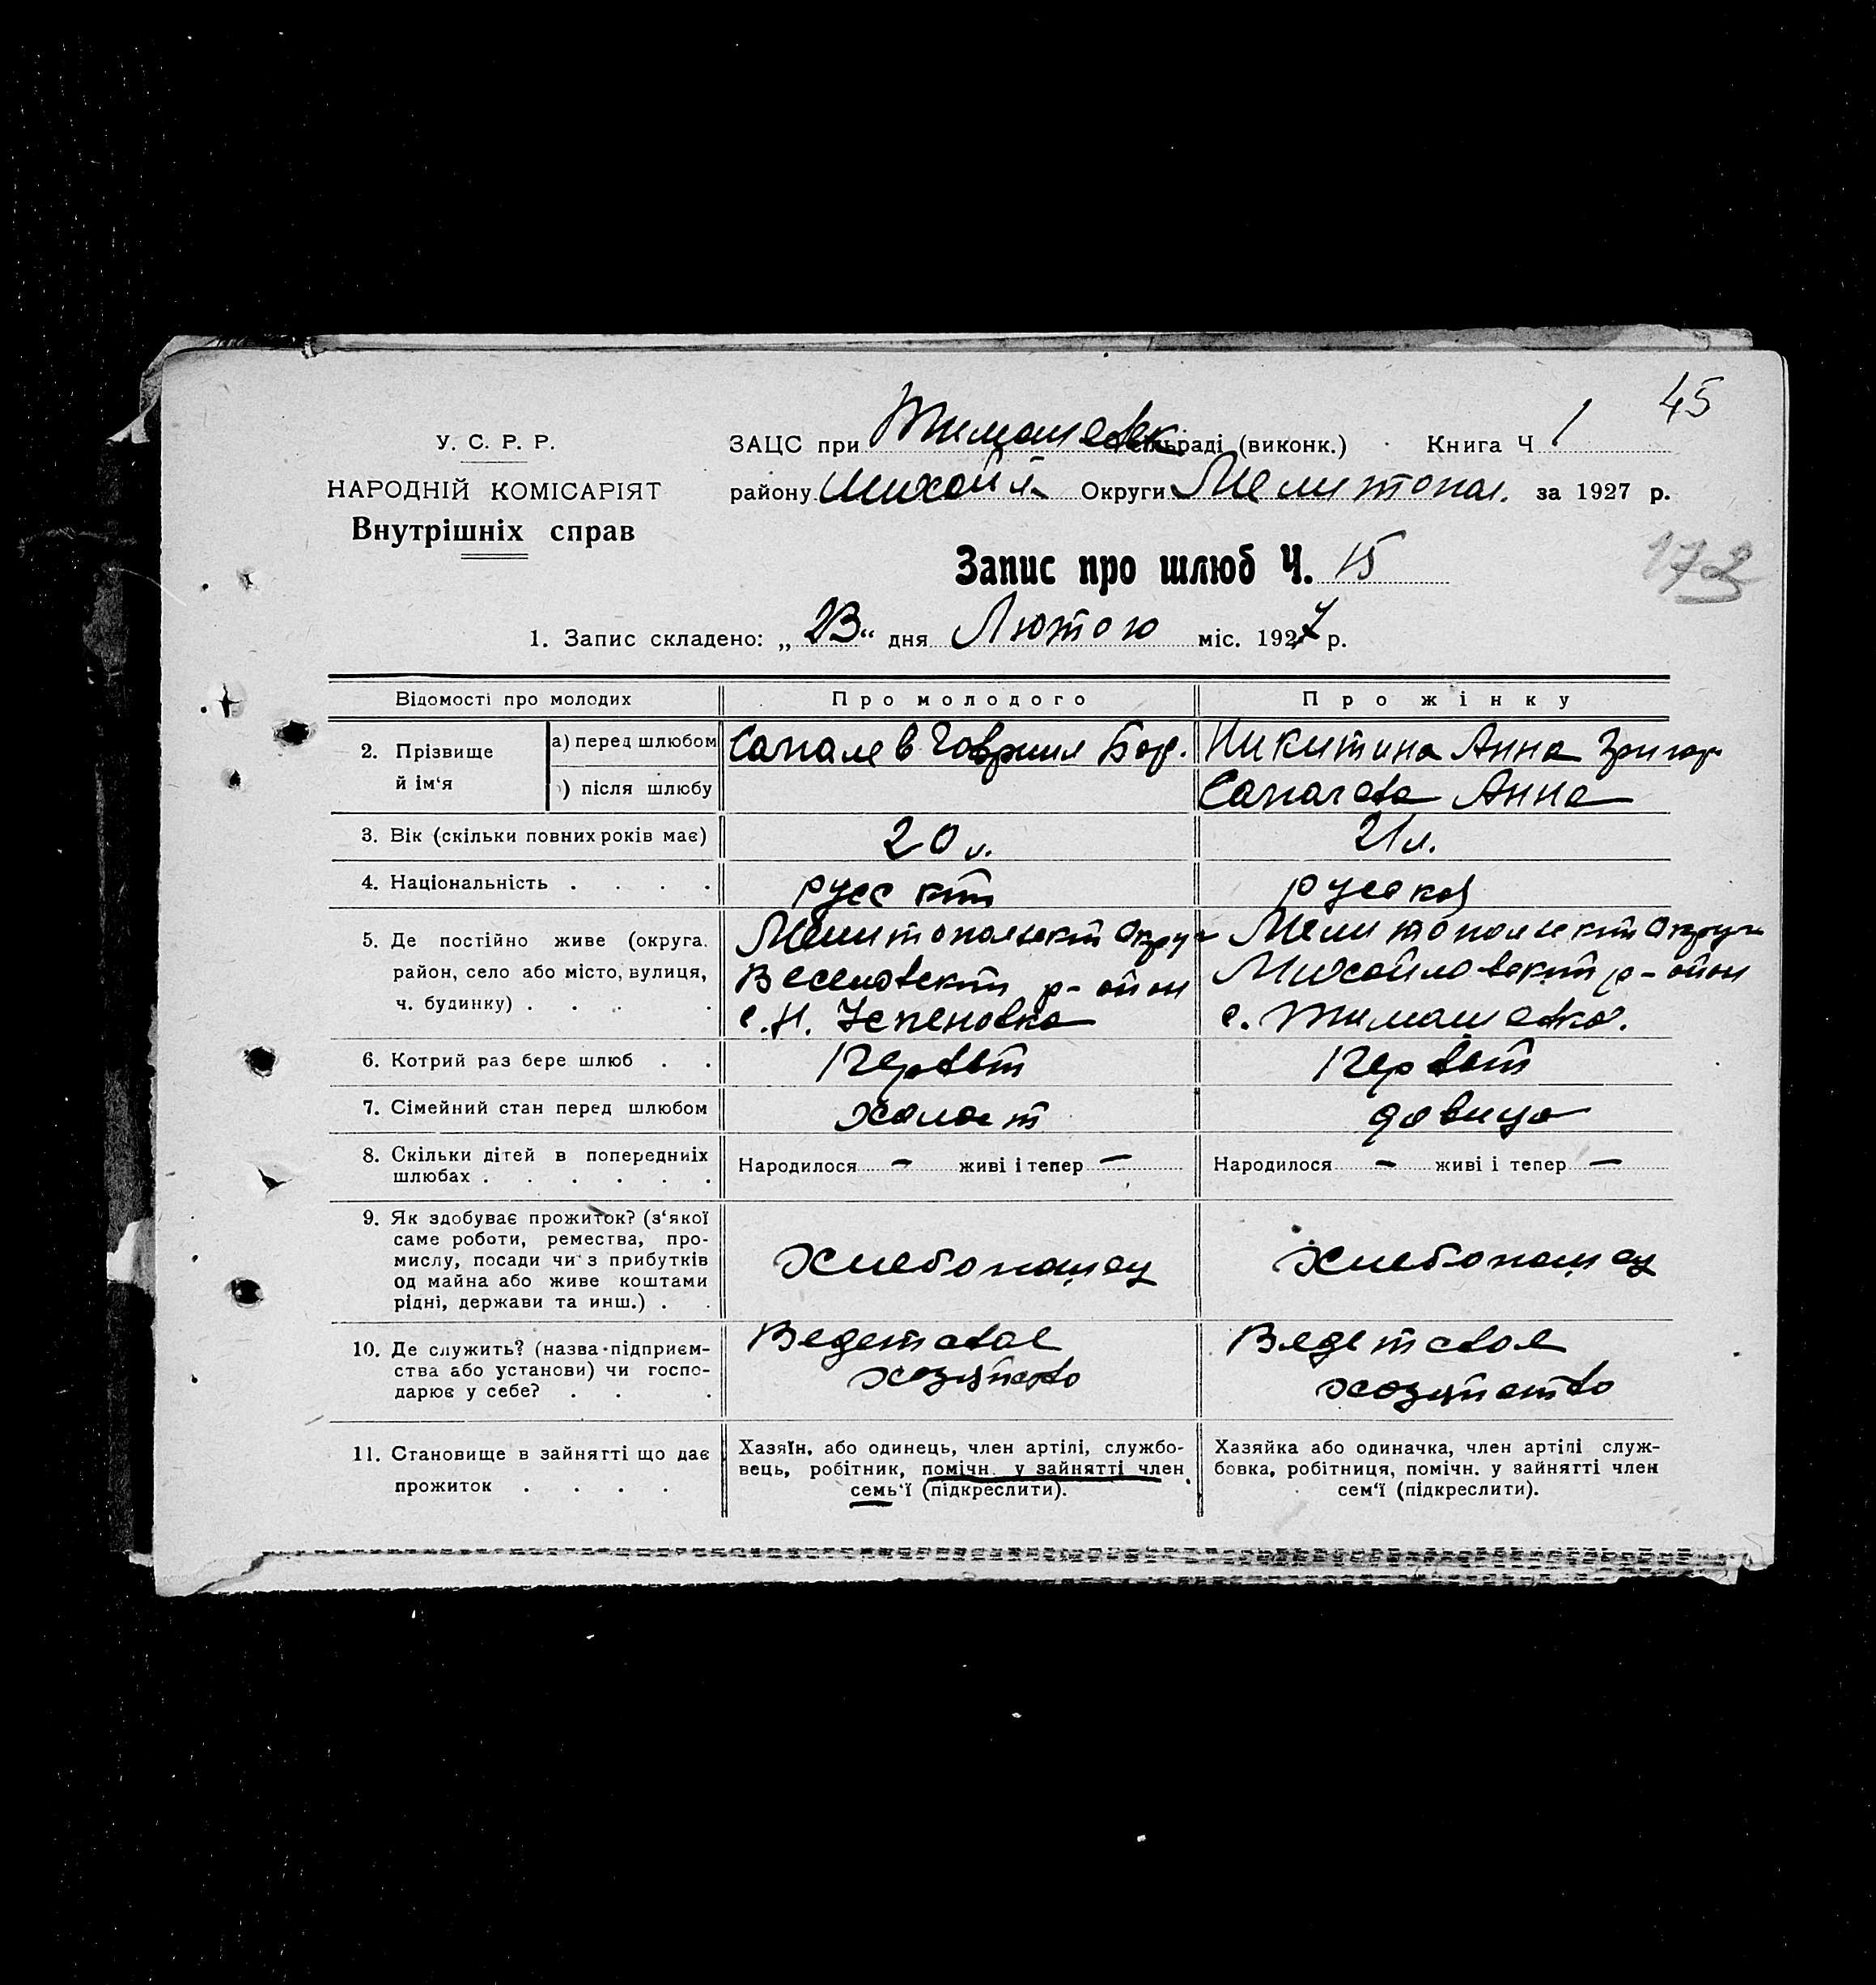 45
У. С. Р. Р.
НАРОДНІЙ КОМІСАРІЯТ
Внутрішніх справ
ЗАЦС при Тимашевск сільраді (виконк.) Книга Ч 1
району Михайл. Округи Мелитопол. за 1927 р.
Запис про шлюб Ч. 15
173
1. Запис складено: „23“ дня Лютого міс. 1927 р.
Відомості про молодих Про молодого Про жінку
2. Прізвище й ім‘я
а) перед шлюбом Сапалев Гавриил Бор. Никитина Анна Григор
) після шлюбу Сапалева Анна
3. Вік (скільки повних років має) 20 л. 21 л.
4. Національність . . . . русский русская
5. Де постійно живе (округа, район, село або місто, вулиця, ч. будинку) . . . .
Мелитопольский Округ
Веселовский р-айон
с. Н. Успеновка
Мелитопольский Округ
Михайловский р-айон
с. Тимашевка.
6. Котрий раз бере шлюб . . Первый Первый
7. Сімейний стан перед шлюбом холост девица
8. Скільки дітей в попередниіх шлюбах . . . . . .
Народилося – живі і тепер –
Народилося – живі і тепер –
9. Як здобуває прожиток? (з‘якої
саме роботи, ремества, про-
мислу, посади чи з прибутків
од майна або живе коштами
рідні, держави та инш.) . .
Хлебопашец Хлебопашец
10. Де служить? (назва підприєм-
ства або установи) чи госпо-
дарює у себе? . . .
Ведет свое
хозяйство
Ведет свое
хозяйство
11. Становище в зайнятті що дає
прожиток . . . .
Хазяїн, або одинець, член артілі, службо-
вець, робітник, помічн. у зайнятті член
семь‘ї (підкреслити).
Хазяйка або одиначка, член артілі служ-
бовка, робітниця, помічн. у зайнятті член
сем‘ї (підкреслити).